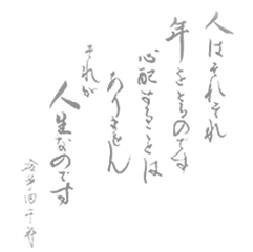 人はそれぞれ
年をとるのです
心配することは
ありません
それが
人生なのです